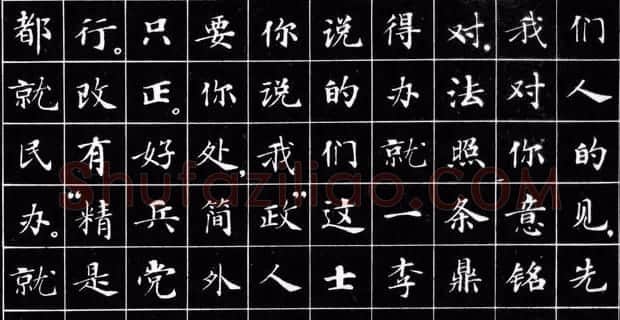 都行。只要你说得对，我们
就改正。你说的办法对人
民有好处，我们就照你的
办。“精兵简政”这一条意见，
就是党外人士李鼎铭先
Shufaziliao.COM